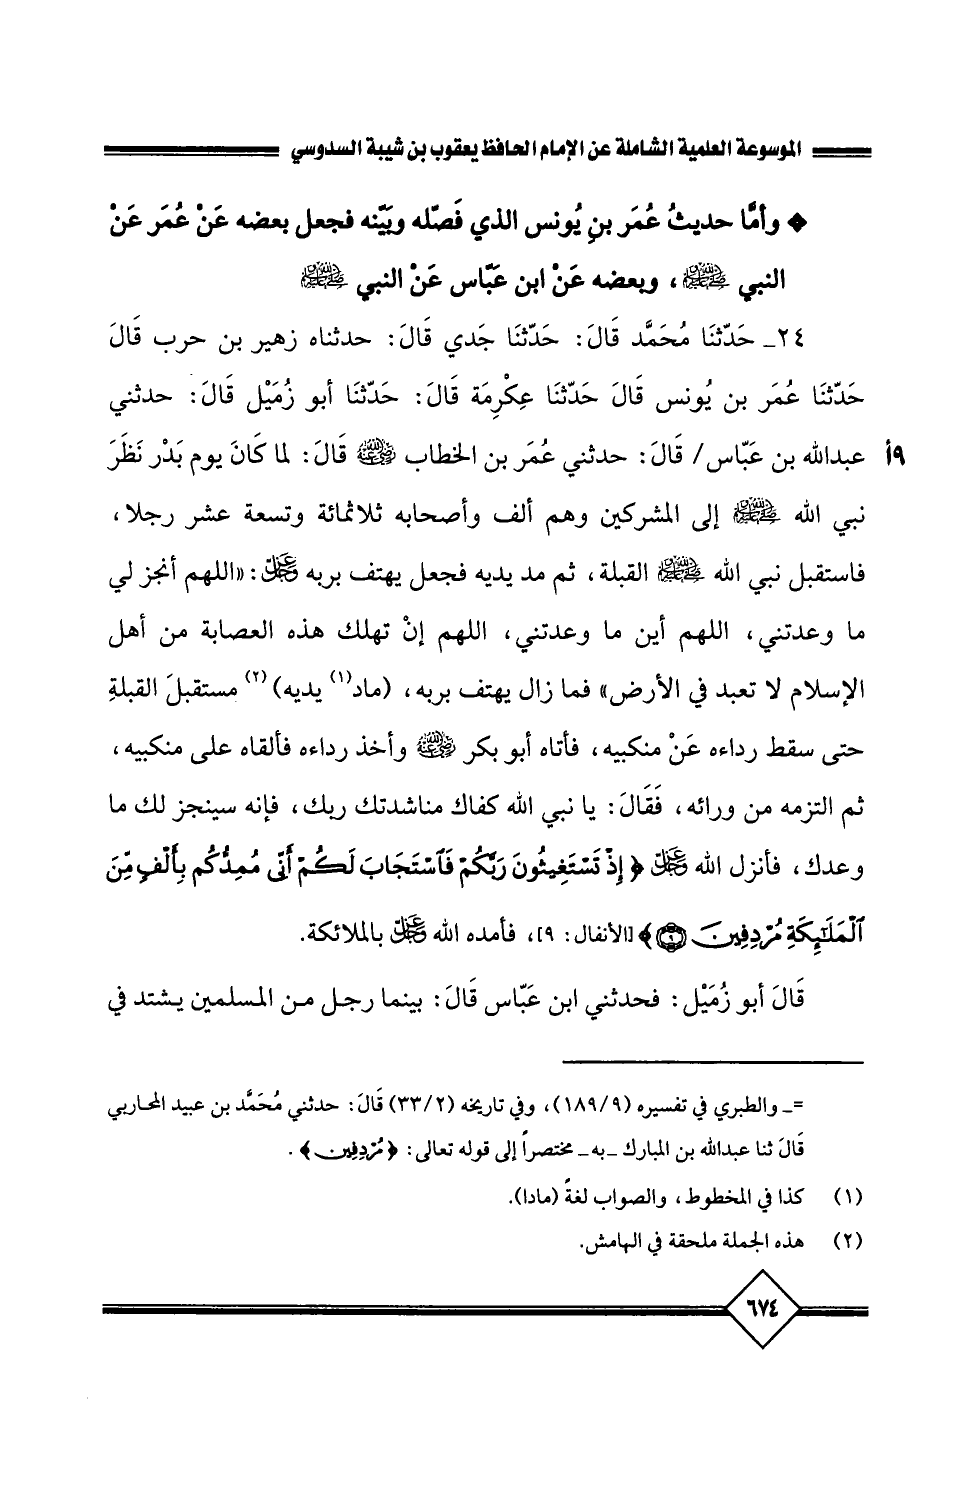 الموسوعة العلمية الشاملة عن الإمام الحافظ يعقوب بن شيبة السدوسي
❖ وأمَّا حديثُ عُمَر بنِ يُونس الذي فَصّله وبَيّنه فجعل بعضه عَنْ عُمَر عَنْ
النبي ﷺ، وبعضه عَنْ ابن عَبَّاس عَنْ النبي ﷺ
٢٤ـ حَدّثنَا مُحَمَّد قَالَ: حَدّثنَا جَدي قَالَ: حدثناه زهير بن حرب قَالَ
حَدّثنَا عُمَر بن يُونس قَالَ حَدّثنَا عِكْرِمَة قَالَ: حَدّثنَا أبو زُمَيْل قَالَ: حدثني
عبدالله بن عَبَّاس/ قَالَ: حدثني عُمَر بن الخطاب رضي الله عنه قَالَ: لما كَانَ يوم بَدْر نَظَرَ ٩أ
نبي الله ﷺ إلى المشركين وهم ألف وأصحابه ثلاثمائة وتسعة عشر رجلا،
فاستقبل نبي الله ﷺ القبلة، ثم مد يديه فجعل يهتف بربه عز وجل: «اللهم أنجز لي
ما وعدتني، اللهم أين ما وعدتني، اللهم إنْ تهلك هذه العصابة من أهل
الإسلام لا تعبد في الأرض» فما زال يهتف بربه، (ماد(١) يديه)(٢) مستقبلَ القبلةِ
حتى سقط رداءه عَنْ منكبيه، فأتاه أبو بكر رضي الله عنه وأخذ رداءه فألقاه على منكبيه،
ثم التزمه من ورائه، فَقَالَ: يا نبي الله كفاك مناشدتك ربك، فإنه سينجز لك ما
وعدك، فأنزل الله عز وجل ﴿إِذْ تَسْتَغِيثُونَ رَبَّكُمْ فَٱسْتَجَابَ لَكُمْ أَنِّى مُمِدُّكُم بِأَلْفٍ مِّنَ
ٱلْمَلَٰٓئِكَةِ مُرْدِفِينَ ۝٩﴾ [الأنفال: ٩]، فأمده الله عز وجل بالملائكة.
قَالَ أبو زُمَيْل: فحدثني ابن عَبّاس قَالَ: بينما رجل من المسلمين يشتد في
=ـ والطبري في تفسيره (٩/ ١٨٩)، وفي تاريخه (٢/ ٣٣) قَالَ: حدثني مُحَمَّد بن عبيد المحاربي
قَالَ ثنا عبدالله بن المبارك ـبه ـ مختصراً إلى قوله تعالى: ﴿مُرْدِفِينَ﴾.
(١) كذا في المخطوط، والصواب لغةً (مادا).
(٢) هذه الجملة ملحقة في الهامش.
٦٧٤